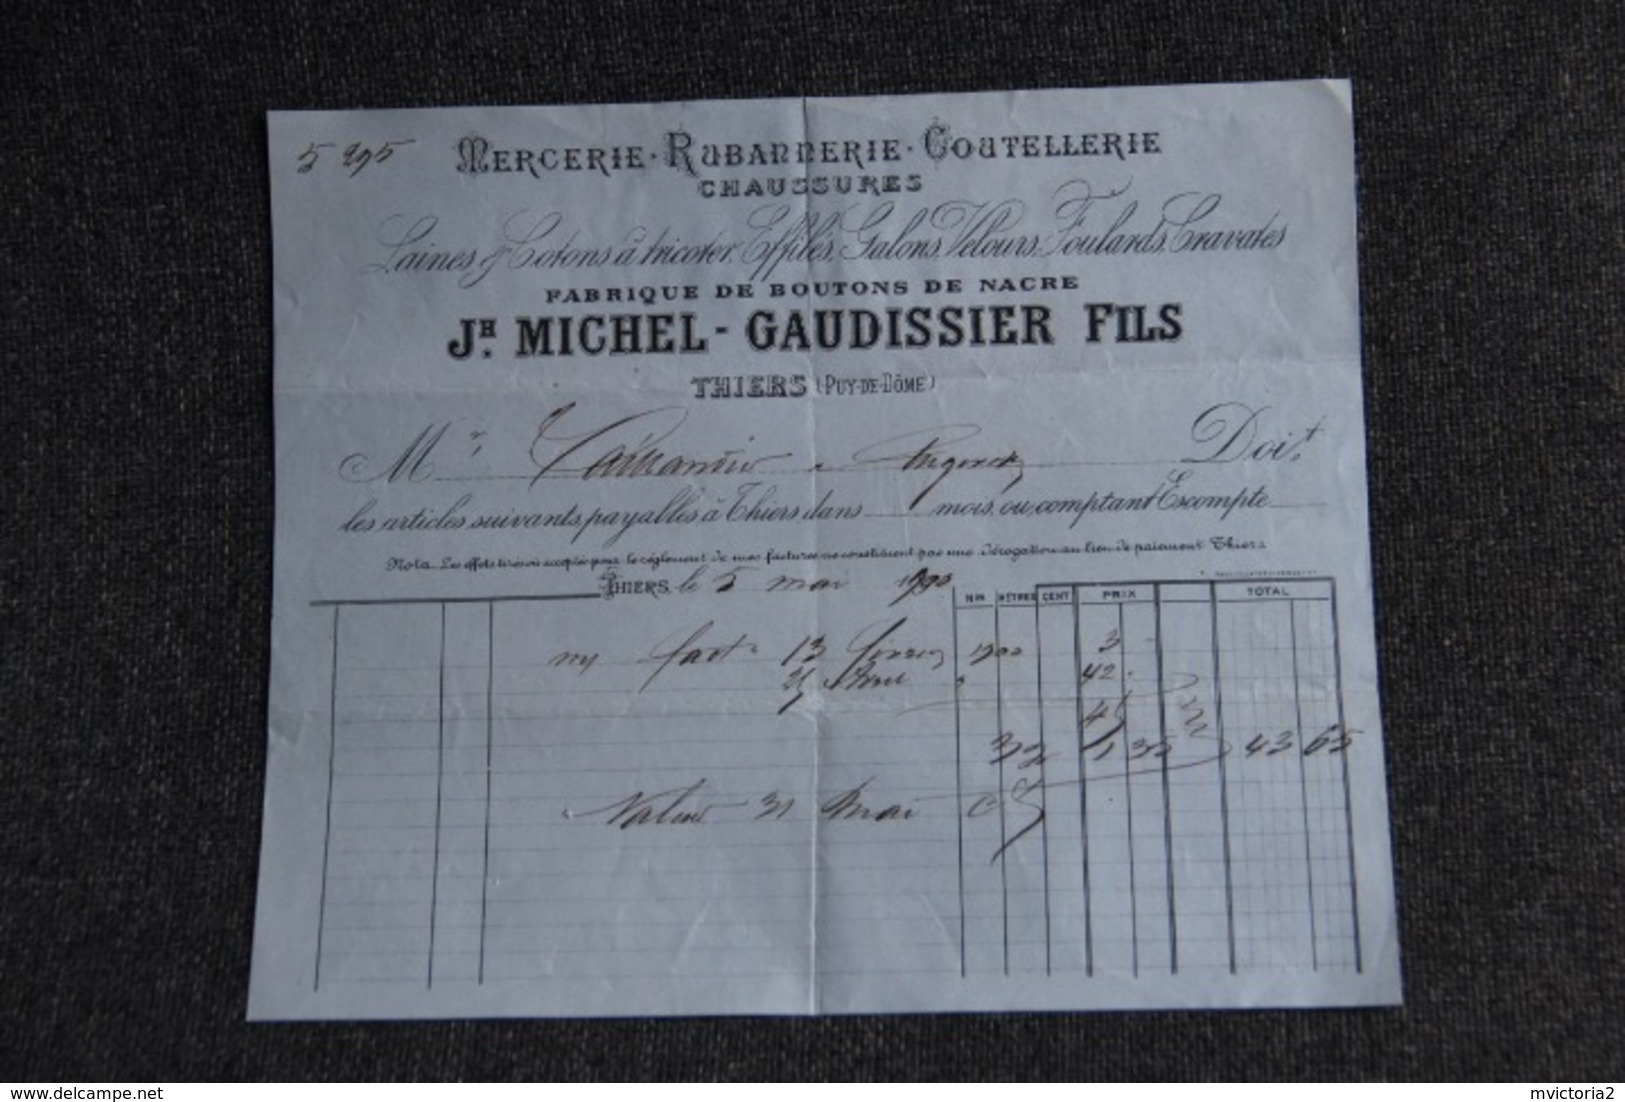 5 295
MERCERIE · RUBANNERIE · COUTELLERIE
CHAUSSURES
Laines & Cotons à tricoter, Effilés, Galons, Velours, Foulards, Cravates
FABRIQUE DE BOUTONS DE NACRE
JH. MICHEL - GAUDISSIER FILS
THIERS (PUY-DE-DÔME)
Mr à Doit
les articles suivants, payables à Thiers dans mois, ou comptant Escompte
Nota. Les effets tirés ou acceptés pour le règlement de mes factures ne constituent pas une dérogation au lieu de paiement Thiers.
THIERS, le 5 mai 1900
NOS MÈTRES CENT PRIX TOTAL
my fact 13 1900 3
42
45
3% 1 35 43 65
Valeur 31 Mai
delcampe.net
mvictoria2